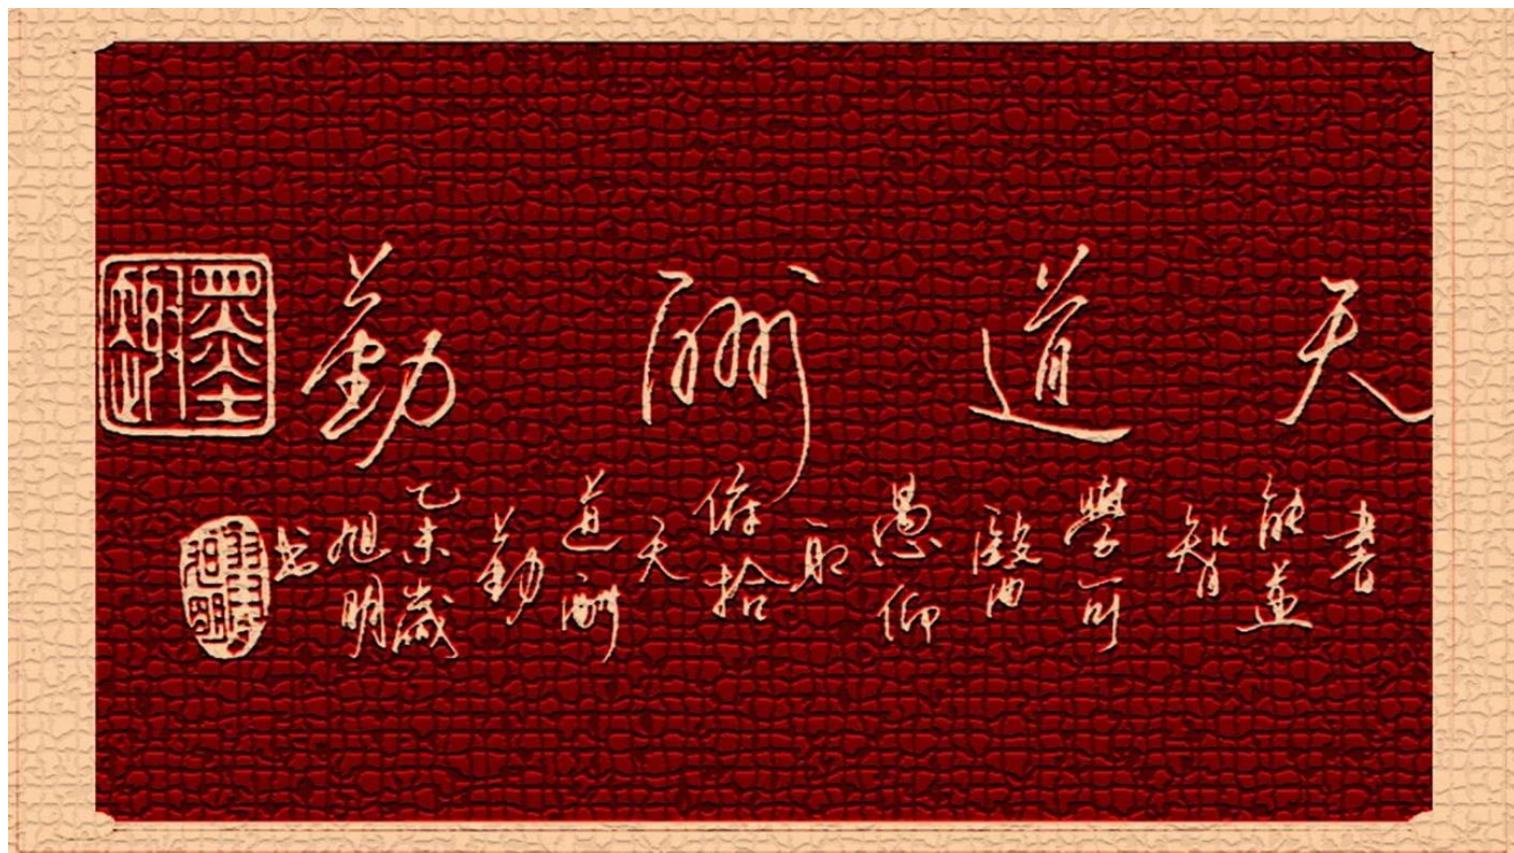 天道酬勤
書
能益
智
學可
醫
愚仰
取
俯拾
天
道酬
勤
乙未歲
旭明
书